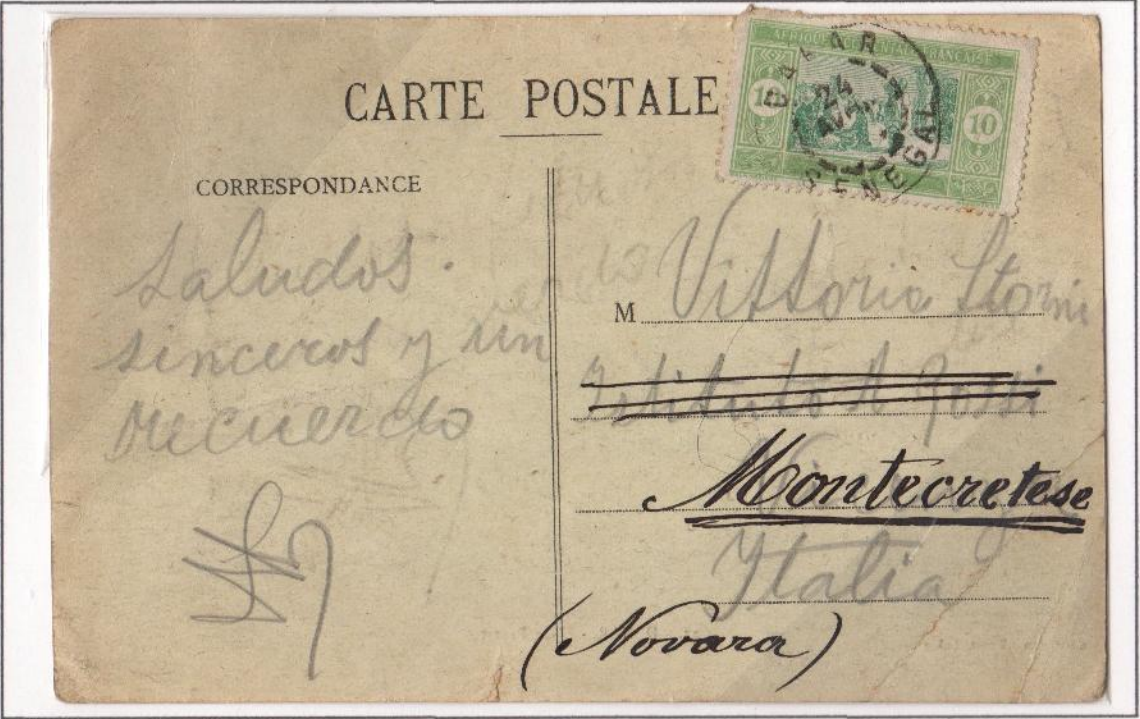 CARTE POSTALE
AFRIQUE OCCIDENTALE FRANÇAISE
10 10
DAKAR
24
SÉNÉGAL
CORRESPONDANCE
Saludos
sinceros y un
recuerdo
M Vittorio Storni
Istituto A Rossi
Montecretese
Italia
(Novara)